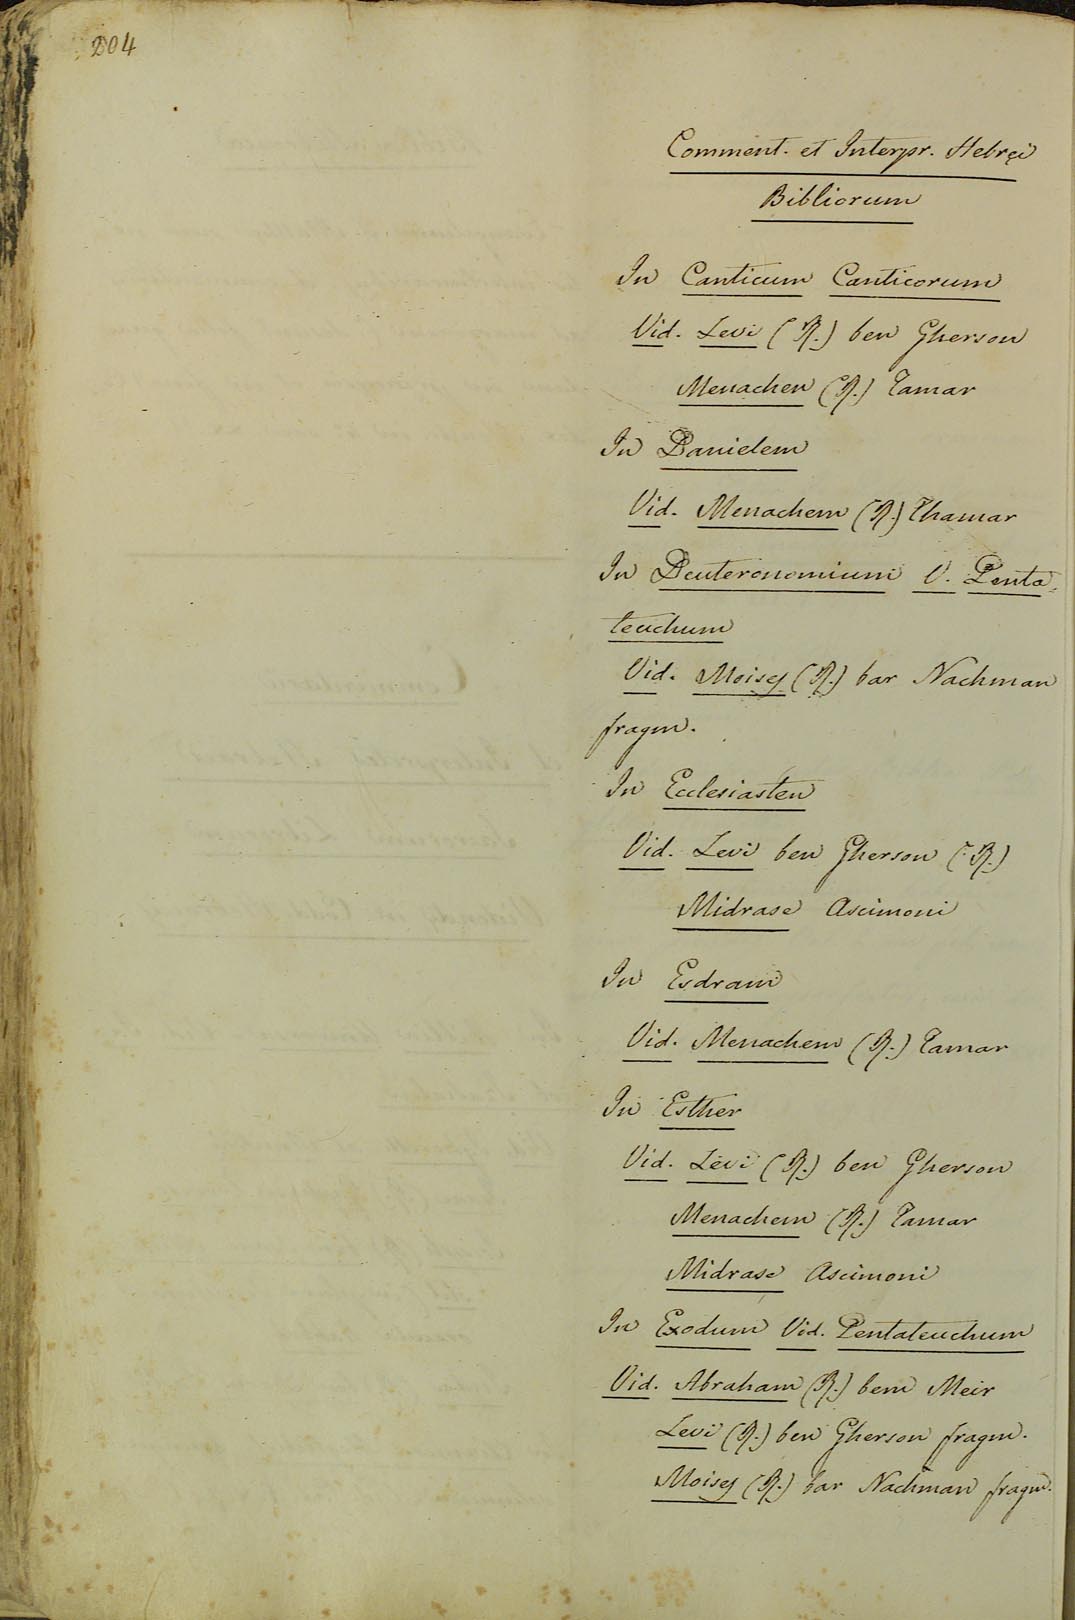 204
Comment. et Interpr. Hebrçi
Bibliorum
In Canticum Canticorum
Vid. Levi (R.) ben Gherson
Menachen (R.) Tamar
In Danielem
Vid. Menachem (R.) Thamar
In Deuteronomium V. Penta,
teuchum
Vid. Moisey (R.) bar Nachman
fragm.
In Ecclesiasten
Vid. Levi ben Gherson (R.)
Midrase Ascimoni
In Esdram
Vid. Menachem (R.) Tamar
In Esther
Vid. Levi (R.) ben Gherson
Menachem (R.) Tamar
Midrase Ascimoni
In Exodum Vid. Pentateuchum
Vid. Abraham (R.) bem Meir
Levi (R.) ben Gherson fragm.
Moisey (R.) bar Nachman fragm.